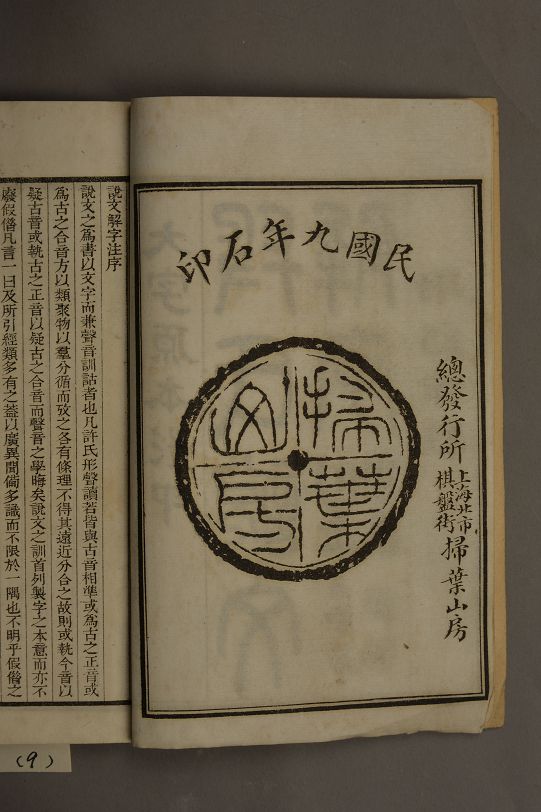 民國九年石印
掃葉山房
總發行所 上海北市棋盤街 掃葉山房
說文解字注序
說文之爲書以文字而兼聲音訓詁者也凡許氏形聲讀若皆與古音相準或爲古之正音或
爲古之合音方以類聚物以羣分循而攷之各有條理不得其遠近分合之故則或執今音以
疑古音或執古之正音以疑古之合音而聲音之學晦矣說文之訓首列製字之本意而亦不
廢假借凡言一曰及所引經類多有之蓋以廣異聞備多識而不限於一隅也不明乎假借之
(9)